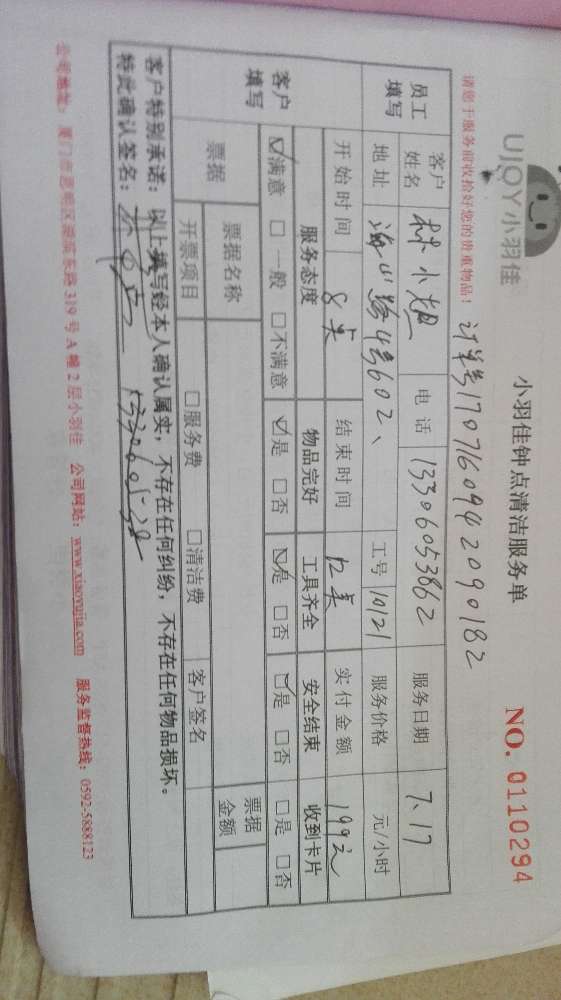 UJOY小羽佳
小羽佳钟点清洁服务单
NO. 0110294
请您于服务前收拾好您的贵重物品！
订单号1707160942090182
员工填写
客户姓名 林小姐 电话 13306053862 服务日期 7.17
地址 海山路4号602、 工号 10121 服务价格 元/小时
开始时间 8点 结束时间 12点 实付金额 199元
客户填写
服务态度 物品完好 工具齐全 安全结束 收到卡片
☑满意 □一般 □不满意 ☑是 □否 ☑是 □否 ☑是 □否 □是 □否
票据
票据名称 票据金额
开票项目 □服务费 □清洁费 客户签名
客户特别承诺：以上填写经本人确认属实，不存在任何纠纷，不存在任何物品损坏。
特此确认签名：
公司地址：厦门市思明区湖滨东路319号A幢2层小羽佳 公司网站：www.xiaoyujia.com 服务监督热线：0592-5888123